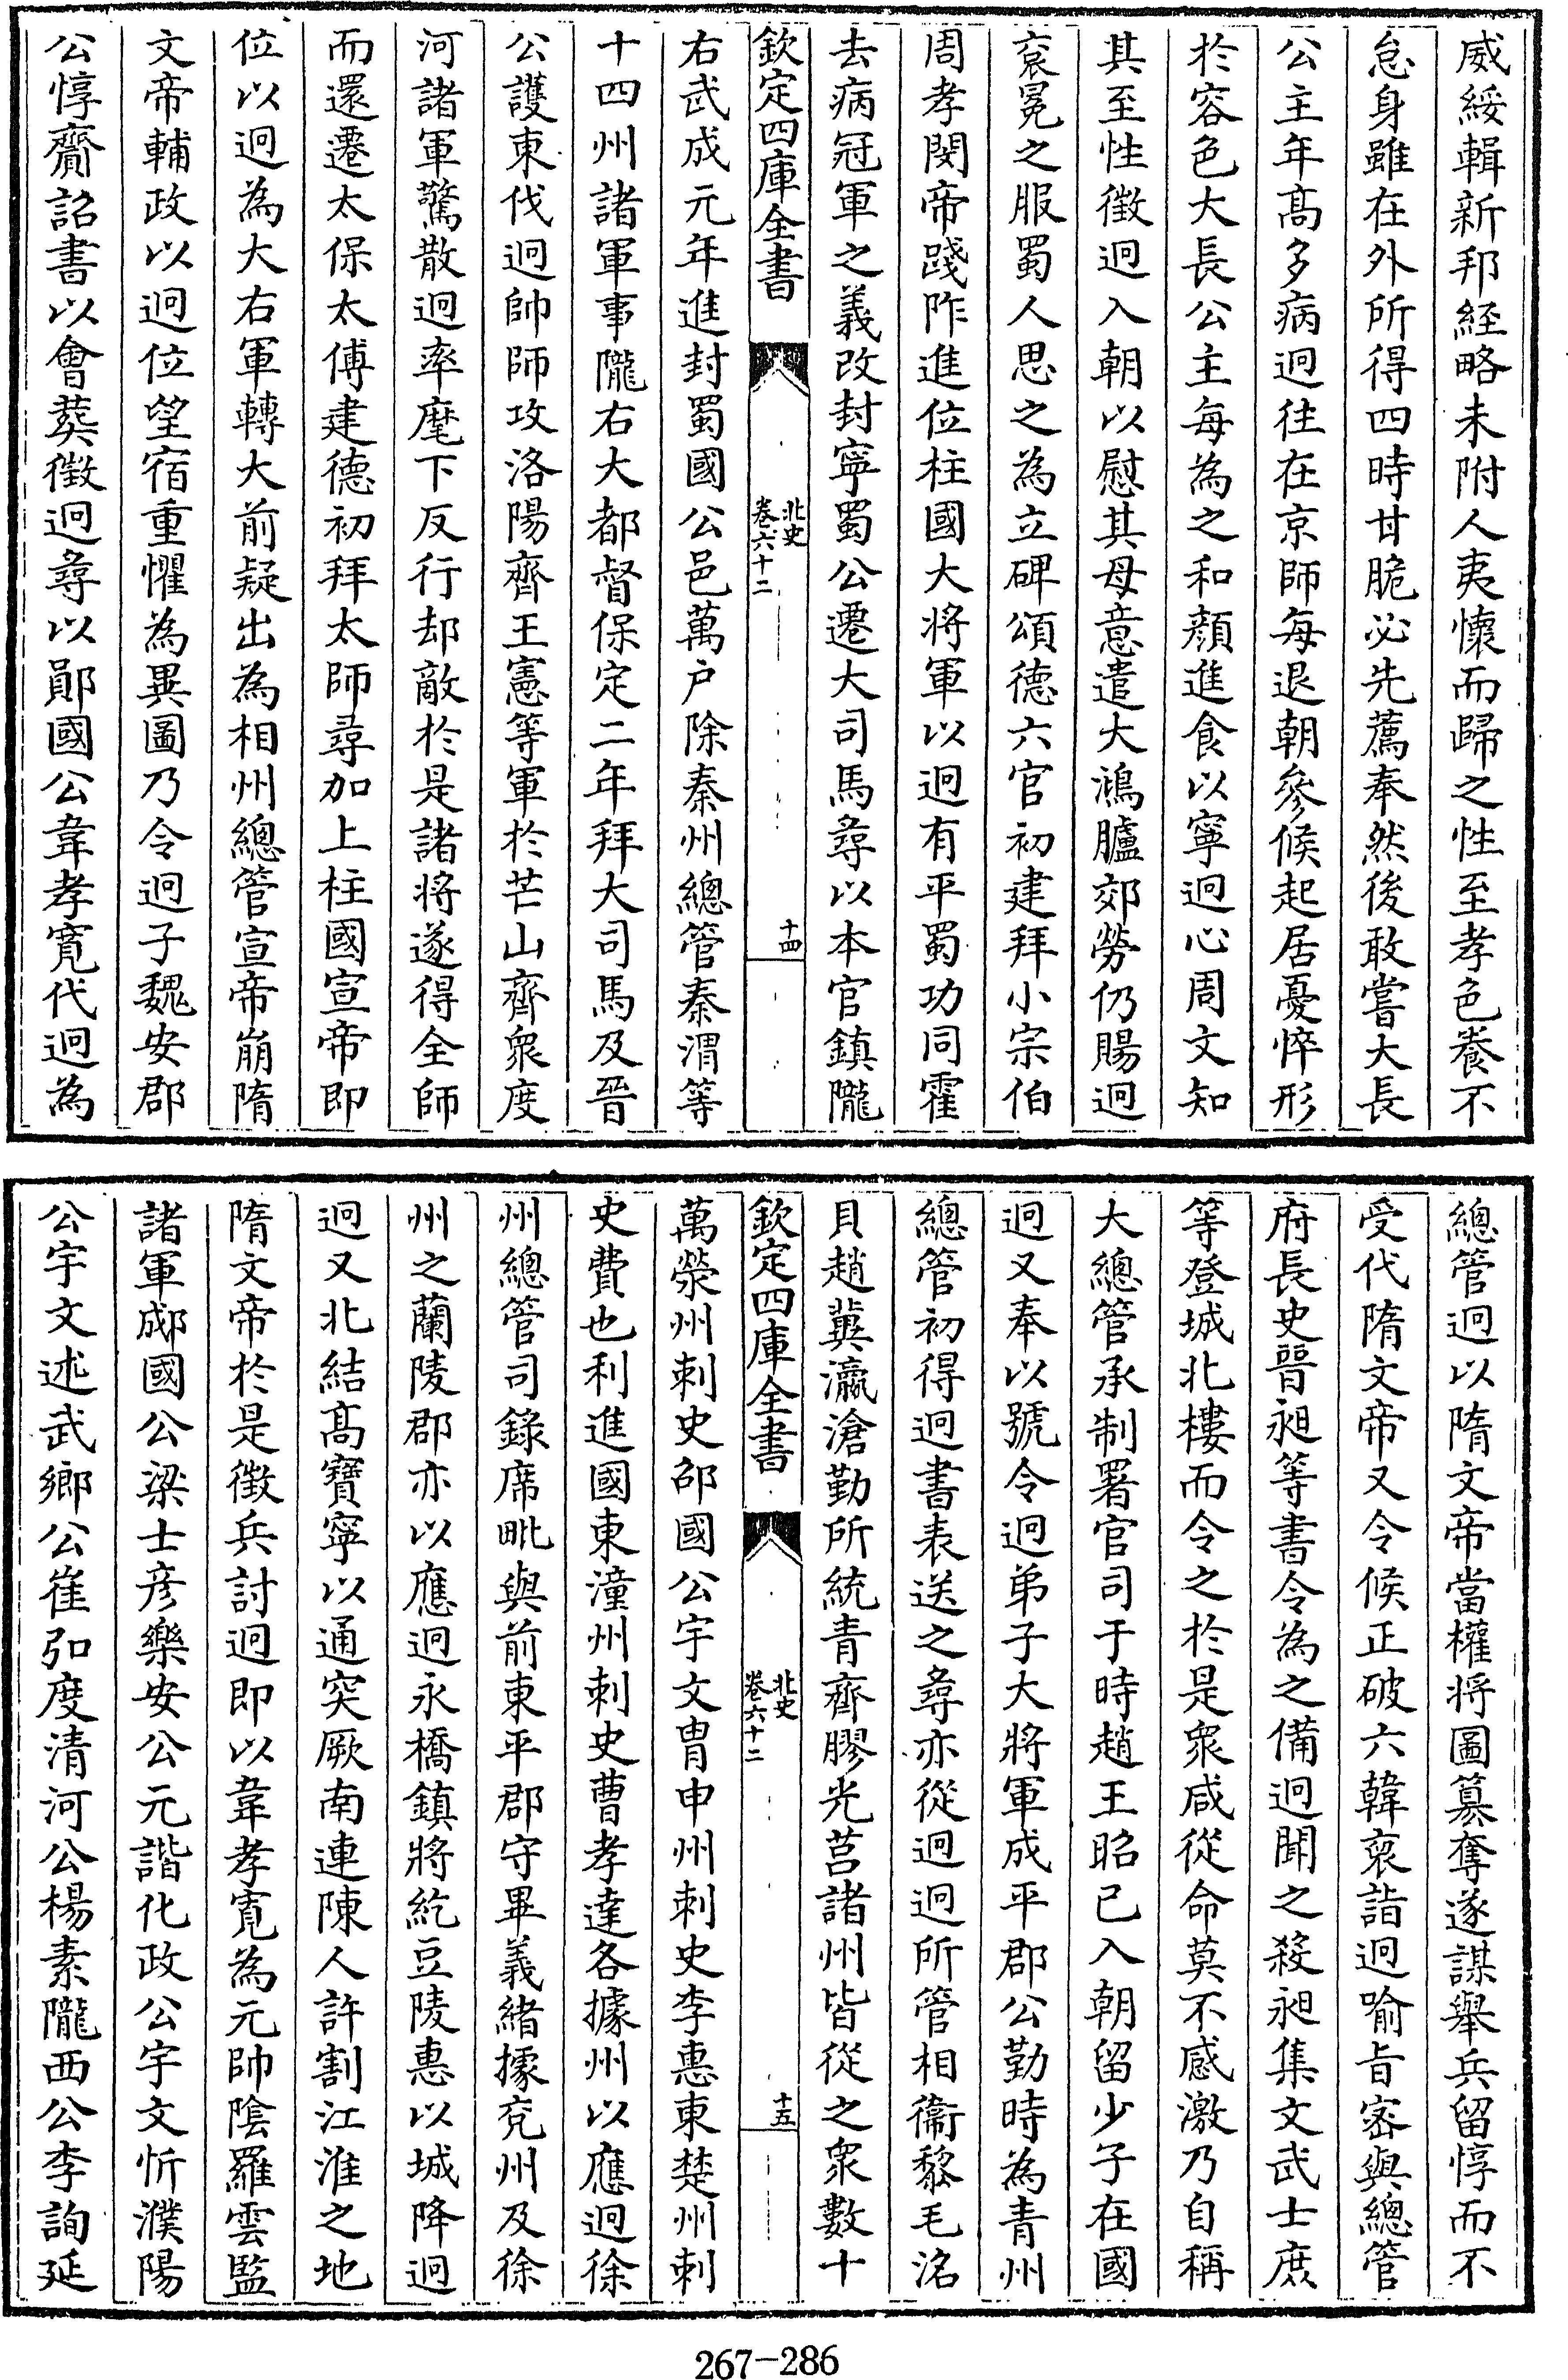 威綏輯新邦經略未附人夷懷而歸之性至孝色養不
怠身雖在外所得四時甘脆必先薦奉然後敢嘗大長
公主年髙多病迥往在京師每退朝參候起居憂悴形
於容色大長公主每為之和顔進食以寧迥心周文知
其至性徵迥入朝以慰其母意遣大鴻臚郊勞仍賜迥
衮冕之服蜀人思之為立碑頌德六官初建拜小宗伯
周孝閔帝踐阼進位柱國大將軍以迥有平蜀功同霍
去病冠軍之義改封寧蜀公遷大司馬尋以本官鎮隴
欽定四庫全書
北史
卷六十二
十四
右武成元年進封蜀國公邑萬户除秦州總管秦渭等
十四州諸軍事隴右大都督保定二年拜大司馬及晉
公護東伐迥帥師攻洛陽齊王憲等軍於芒山齊衆度
河諸軍驚散迥率麾下反行却敵於是諸將遂得全師
而還遷太保太傅建德初拜太師尋加上柱國宣帝即
位以迥為大右軍轉大前疑出為相州總管宣帝崩隋
文帝輔政以迥位望宿重懼為異圖乃令迥子魏安郡
公惇齎詔書以會葬徵迥尋以鄖國公韋孝寛代迥為
總管迥以隋文帝當權將圖簒奪遂謀舉兵留惇而不
受代隋文帝又令候正破六韓裒詣迥喻旨密與總管
府長史晉昶等書令為之備迥聞之殺昶集文武士庶
等登城北樓而令之於是衆咸從命莫不感激乃自稱
大總管承制署官司于時趙王昭已入朝留少子在國
迥又奉以號令迥弟子大將軍成平郡公勤時為青州
總管初得迥書表送之尋亦從迥迥所管相衞黎毛洺
貝趙冀瀛滄勤所統青齊膠光莒諸州皆從之衆數十
欽定四庫全書
北史
卷六十二
十五
萬滎州刺史邵國公宇文胄申州刺史李惠東楚州刺
史費也利進國東潼州刺史曹孝達各據州以應迥徐
州總管司錄席毗與前東平郡守畢義緒據兖州及徐
州之蘭陵郡亦以應迥永橋鎮將紇豆陵惠以城降迥
迥又北結髙寶寧以通突厥南連陳人許割江淮之地
隋文帝於是徵兵討迥即以韋孝寛為元帥陰羅雲監
諸軍郕國公梁士彦樂安公元諧化政公宇文忻濮陽
公宇文述武鄉公崔弘度清河公楊素隴西公李詢延
267-286